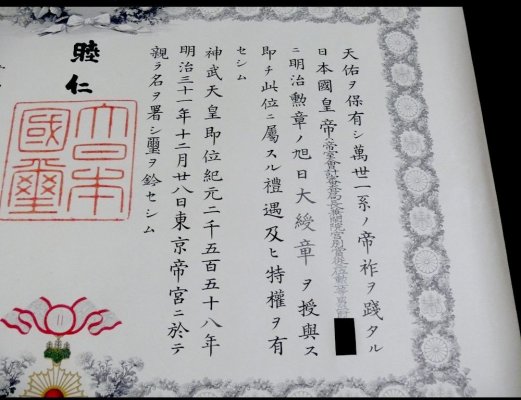 天佑ヲ保有シ萬世一系ノ帝祚ヲ踐タル
日本國皇帝ハ帝室會計審査局長
ニ明治勲章ノ旭日大綬章ヲ授與ス
即チ此位ニ屬スル禮遇及ヒ特權ヲ有
セシム
神武天皇即位紀元二千五百五十八年
明治三十一年十二月廿八日東京帝宮ニ於テ
親ラ名ヲ署シ璽ヲ鈐セシム
睦仁
大日本
國璽